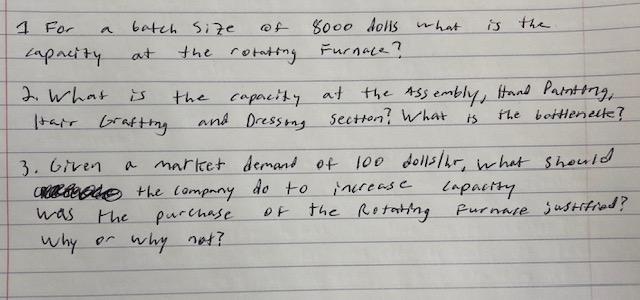 1 For a batch size of 8000 dolls what is the
capacity at the rotating Furnace?
2. What is the capacity at the Assembly, Hand Painting,
Hair Grafting and Dressing section? What is the bottleneck?
3. Given a market demand of 100 dolls/hr, what should
the company do to increase capacity
was the purchase of the Rotating Furnace justified?
Why or why not?